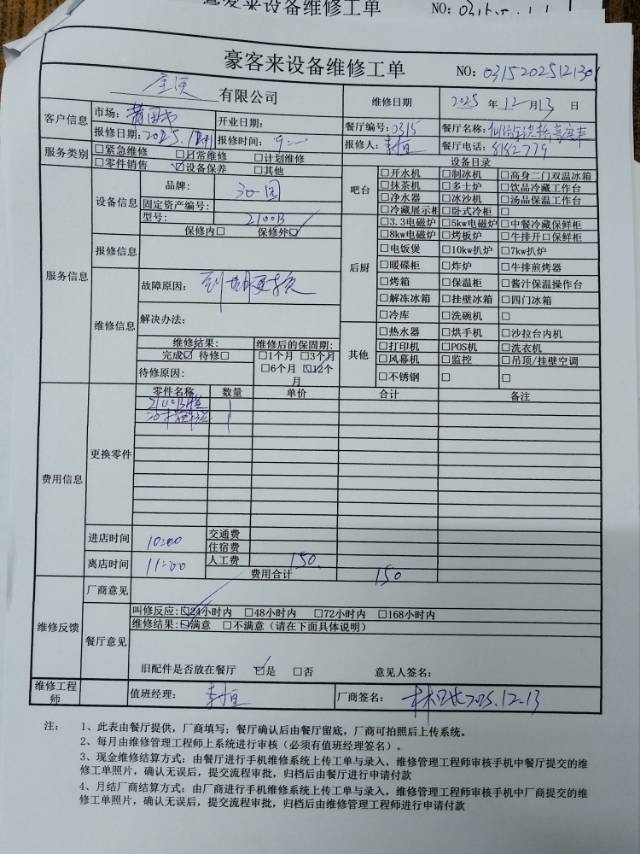 豪客来设备维修工单
NO：0315202512130
有限公司 维修日期 2025 年 12 月 13 日
客户信息 市场：莆田 开业日期： 餐厅编号：0315 餐厅名称：
报修日期：2025. 报修时间：9: 报修人： 餐厅电话：8182779
服务类别 □紧急维修 □日常维修 □计划维修 设备目录
□零件销售 ☑设备保养 □其他
服务信息
设备信息
品牌：
固定资产编号：
型号：21001B
保修内□ 保修外☑
报修信息
维修信息
故障原因：到期更换
解决办法：
维修结果： 维修后的保固期：
完成☑ 待修□ □1个月 □3个月
待修原因： □6个月 ☑12个月
吧台
□开水机 □制冰机 □高身二门双温冰箱
□抹茶机 □多士炉 □饮品冷藏工作台
□净水器 □冰沙机 □汤品保温工作台
□冷藏展示柜 □卧式冷柜 □
后厨
□3.3电磁炉 □5kw电磁炉 □中餐冷藏保鲜柜
□8kw电磁炉 □烤板炉 □牛排开口保鲜柜
□电饭煲 □10kw扒炉 □7kw扒炉
□暖碟柜 □炸炉 □牛排煎烤器
□烤箱 □保温柜 □酱汁保温操作台
□解冻冰箱 □挂壁冰箱 □四门冰箱
□冷库 □洗碗机 □
其他
□热水器 □烘手机 □沙拉台内机
□打印机 □POS机 □洗衣机
□风幕机 □监控 □吊顶/挂壁空调
□不锈钢 □ □
费用信息
更换零件
零件名称 数量 单价 合计 备注
1
1
进店时间 10:00 交通费
住宿费
离店时间 11:00 人工费 150
费用合计 150
维修反馈
厂商意见
餐厅意见
叫修反应：☑24小时内 □48小时内 □72小时内 □168小时内
维修结果：☑满意 □不满意（请在下面具体说明）
旧配件是否放在餐厅 ☑是 □否 意见人签名：
维修工程师 值班经理： 厂商签名： 2025.12.13
注： 1、此表由餐厅提供，厂商填写；餐厅确认后由餐厅留底，厂商可拍照后上传系统。
2、每月由维修管理工程师上系统进行审核（必须有值班经理签名）。
3、现金维修结算方式：由餐厅进行手机维修系统上传工单与录入，维修管理工程师审核手机中餐厅提交的维
修工单照片，确认无误后，提交流程审批，归档后由餐厅进行申请付款
4、月结厂商结算方式：由厂商进行手机维修系统上传工单与录入，维修管理工程师审核手机中厂商提交的维
修工单照片，确认无误后，提交流程审批，归档后由维修管理工程师进行申请付款